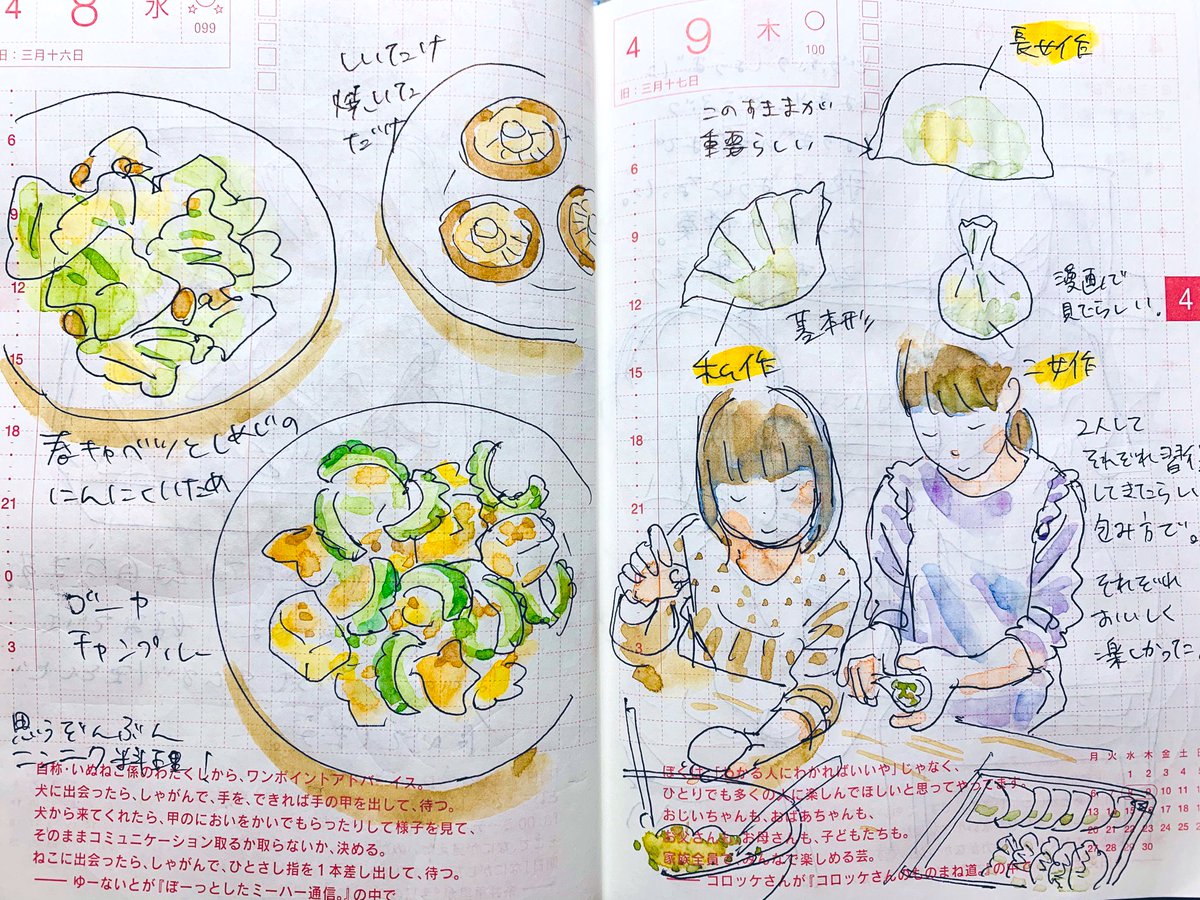 4 8 水
099
旧：三月十六日
しいたけ
焼いた
だけ
6
9
12
15
18
21
0
3
春キャベツとしめじの
にんにくいため
ゴーヤ
チャンプルー
思うぞんぶん
ニンニク料理！
自称・いぬねこ係のわたくしから、ワンポイントアドバイス。
犬に出会ったら、しゃがんで、手を、できれば手の甲を出して、待つ。
犬から来てくれたら、甲のにおいをかいでもらったりして様子を見て、
そのままコミュニケーション取るか取らないか、決める。
ねこに出会ったら、しゃがんで、ひとさし指を1本差し出して、待つ。
―― ゆーないとが『ぼーっとしたミーハー通信。』の中で
4 9 木
100
旧：三月十七日
長女作
このすきまが
重要らしい
6
9
12
15
18
21
3
基本形
漫画で
見たらしい！
4
私作
二女作
2人して
それぞれ習得
してきたらしい
包み方で。
それぞれ
おいしく
楽しかった
ぼくは、「わかる人にわかればいいや」じゃなく、
ひとりでも多くの人に楽しんでほしいと思ってやってます
おじいちゃんも、おばあちゃんも、
お父さんも、お母さんも、子どもたちも。
家族全員で、みんなで楽しめる芸。
―― コロッケさんが『コロッケさんのものまね道。』の中で
月 火 水 木 金 土
1 2 3 4
6 8 9
13 14 15
20 21 22 23 24 25
27 28 29 30